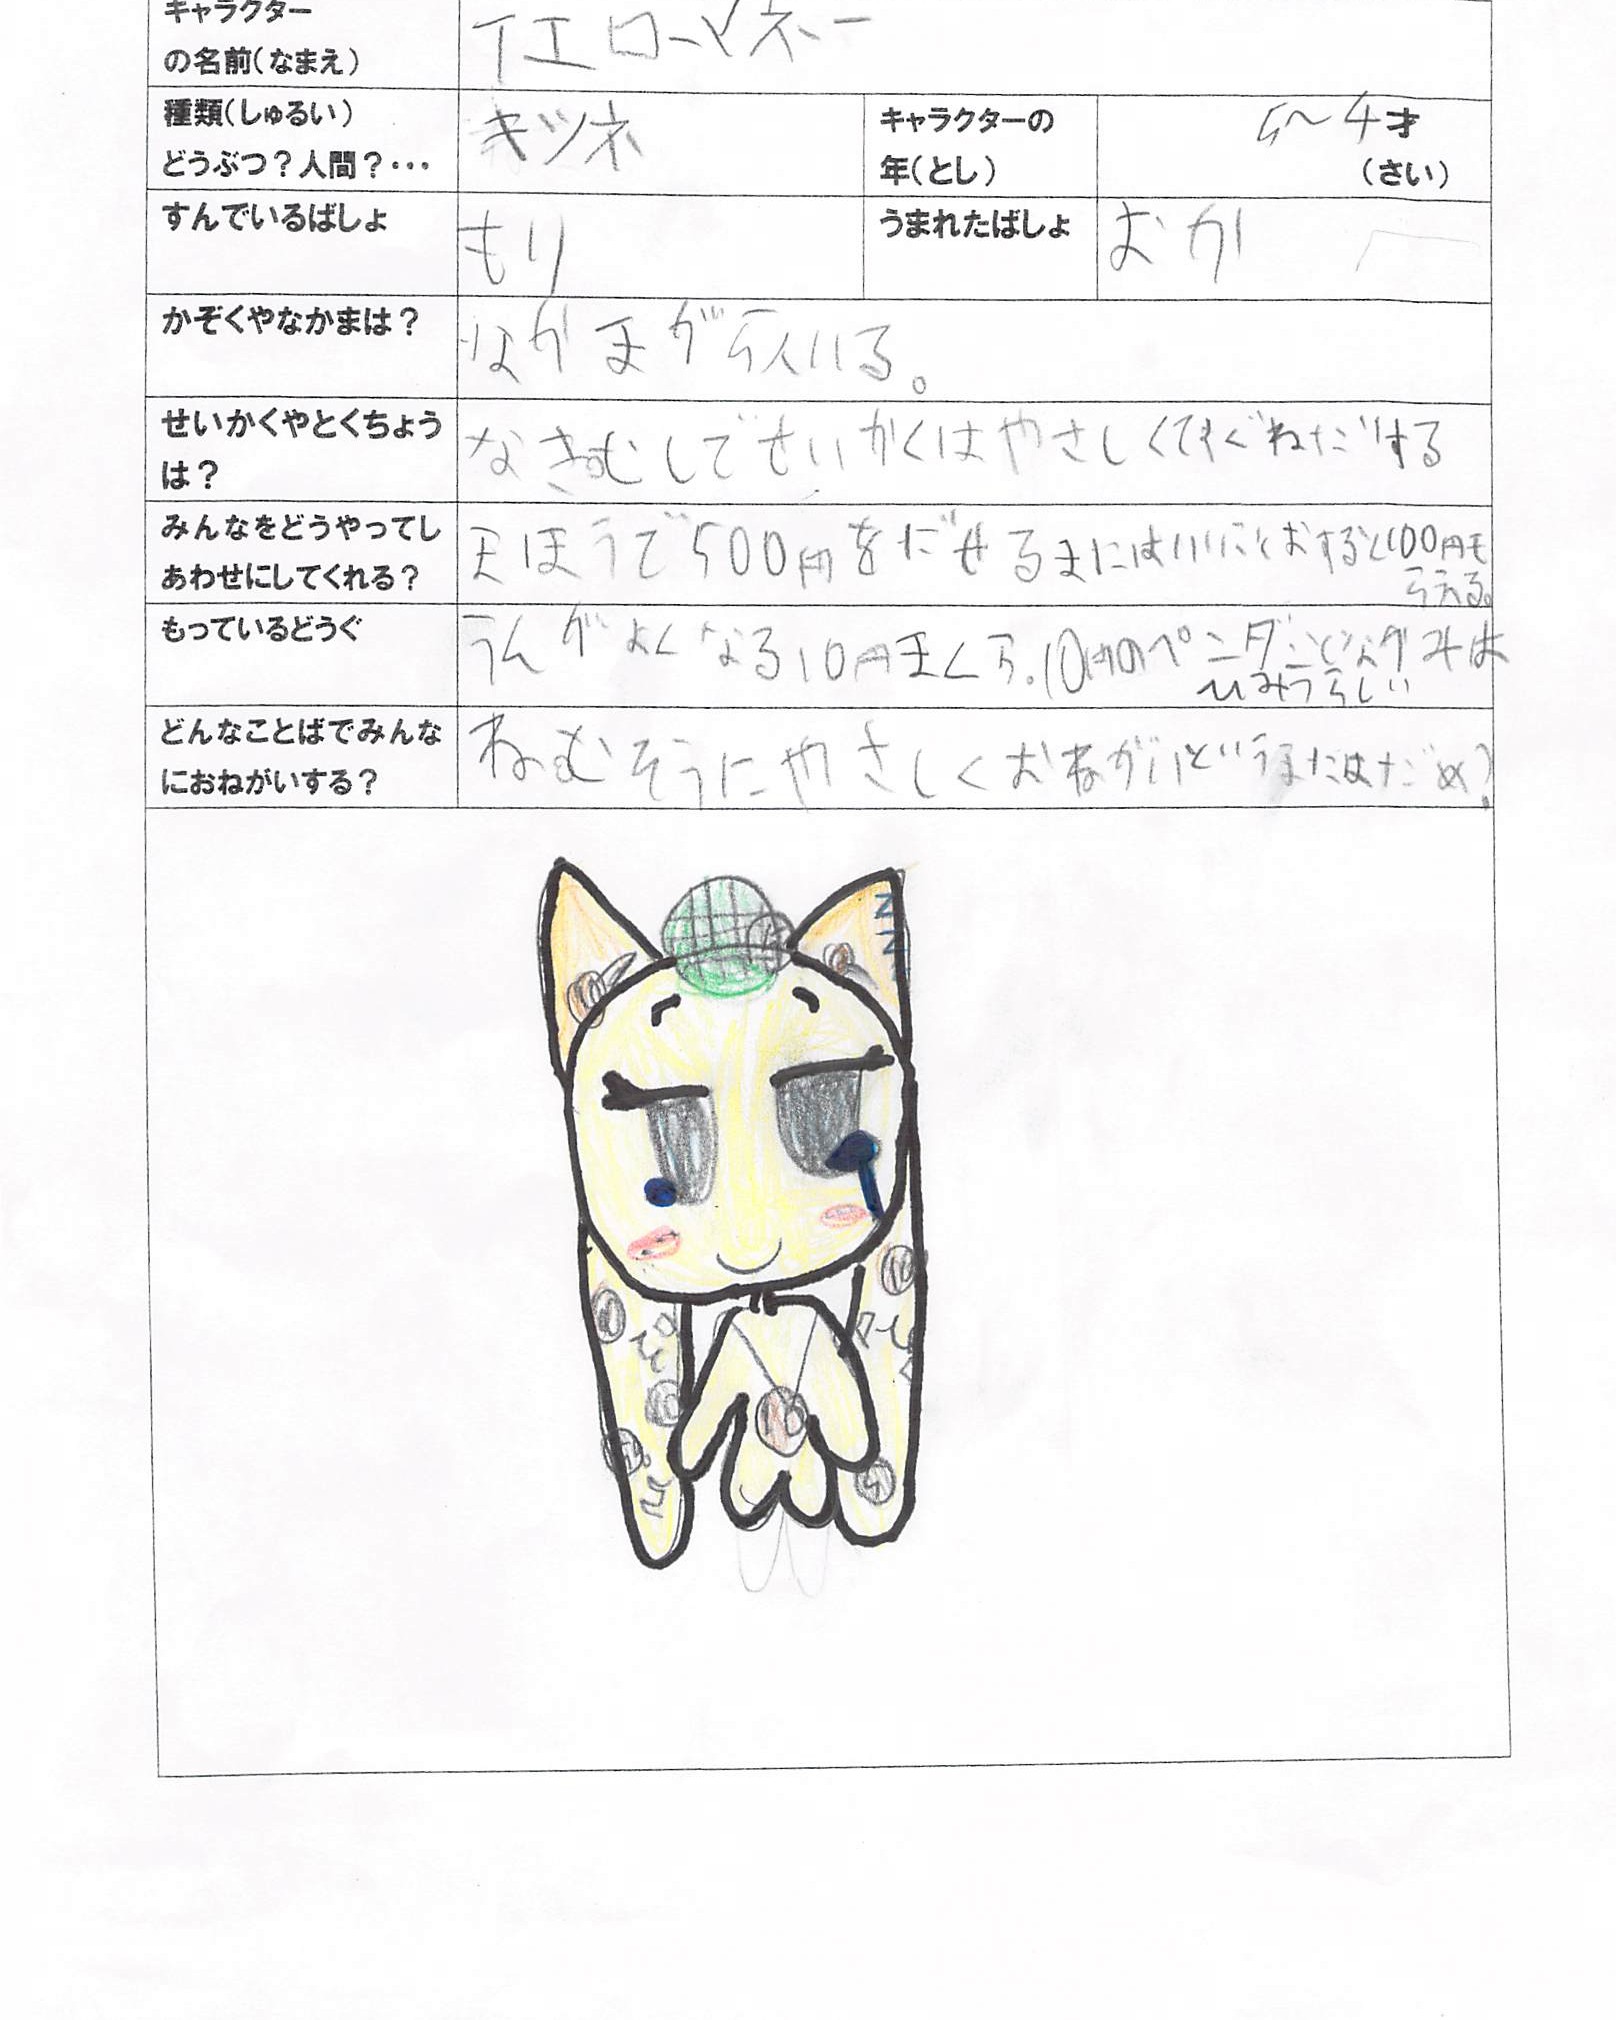 キャラクター
の名前(なまえ)
イエローマネー
種類(しゅるい)
どうぶつ?人間?・・・
キツネ
キャラクターの
年(とし)
5〜4才
(さい)
すんでいるばしょ
もり
うまれたばしょ
おか
かぞくやなかまは?
なかまが5人いる。
せいかくやとくちょう
は?
なきむしでせいかくはやさしくてすぐねだりする
みんなをどうやってし
あわせにしてくれる?
まほうで500円をだせるまにはいいことおすると100円も
らえる。
もっているどうぐ
うんがよくなる10円まくら.10円のペンダント
ひみつらしい
どんなことばでみんな
におねがいする?
ねむそうにやさしくおねがいという
10
10
10